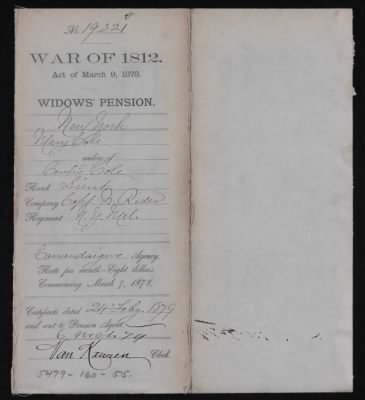 No. 19.321
WAR OF 1812.
Act of March 9, 1878.
WIDOWS' PENSION.
New York
Mary Cole
widow of
Cole
Rank Lieut
Company Capt. N. Rider
Regiment N.Y. Mil.
Canandaigua Agency.
Rate per month-Eight dollars.
Commencing March 9, 1878.
Certificate dated 24" Feby. 1879
and sent to Pension Agent,
6 Mch 79
Clerk.
5479-160-55.